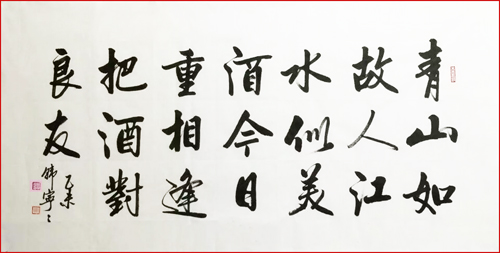 青山如
故人江
水似美
酒今日
重相逢
把酒對
良友
乙未